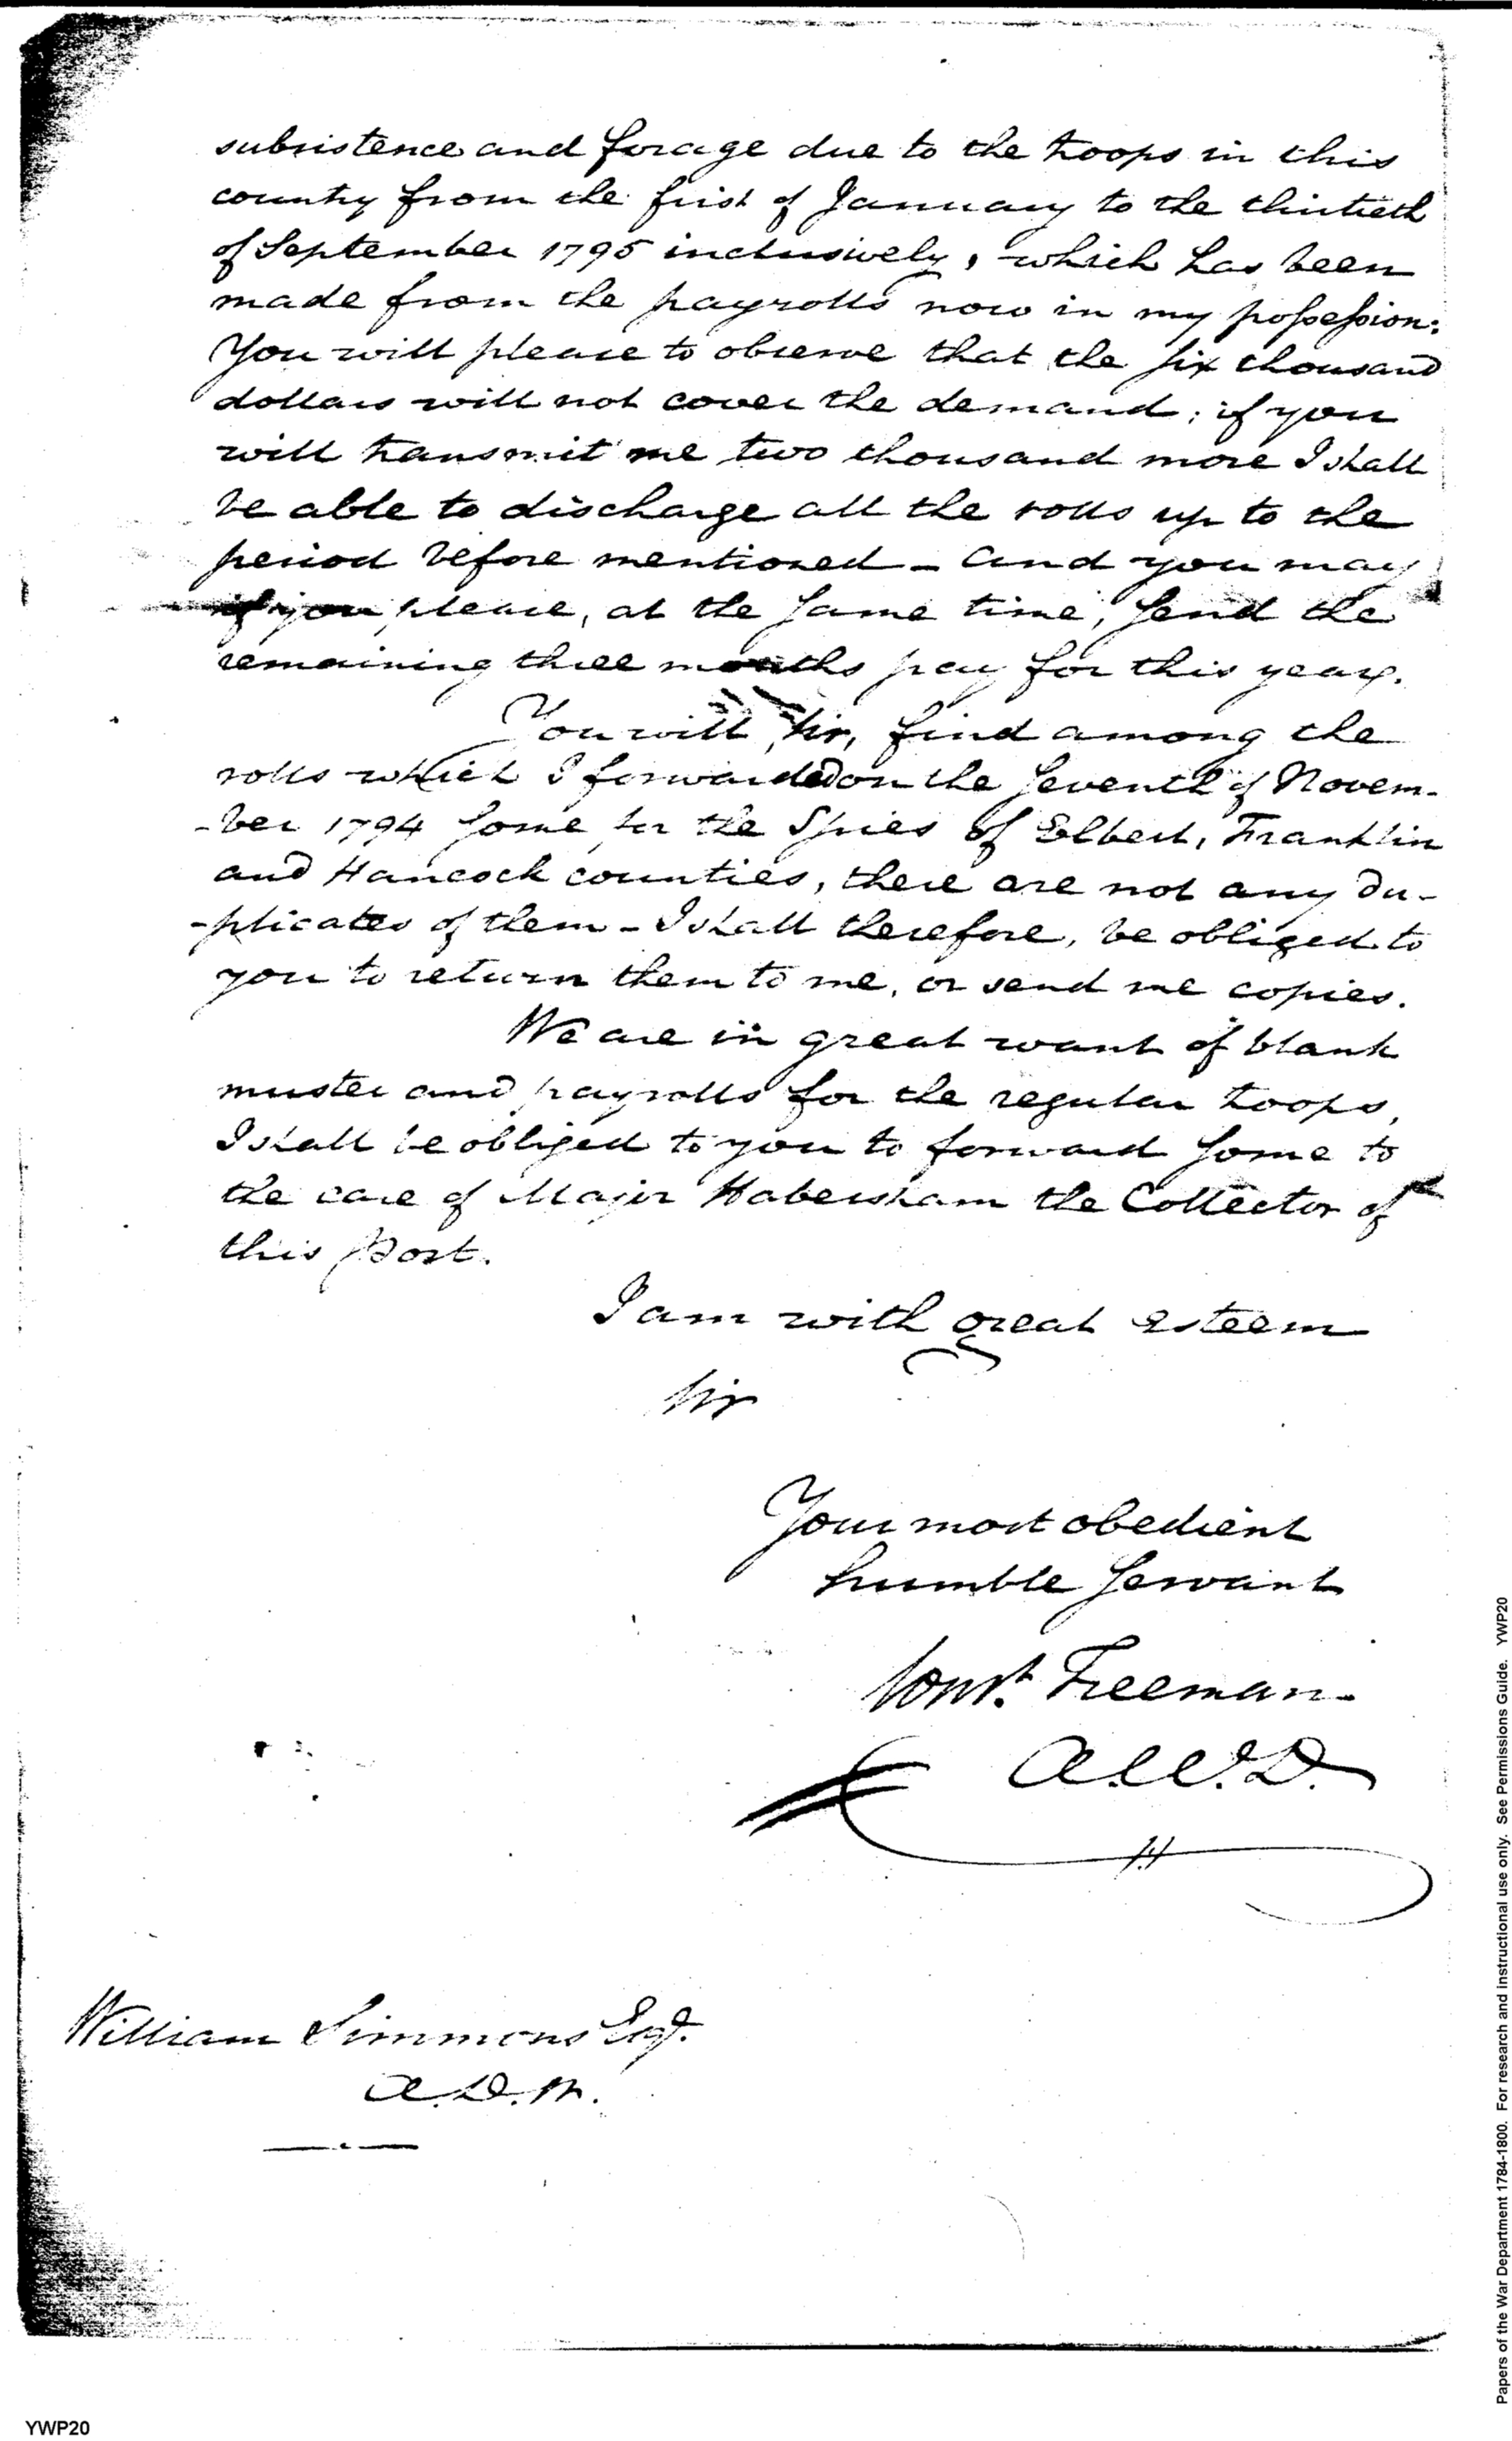 subsistence and forage due to the troops in this
country from the first of January to the thirtieth
of September 1795 inclusively, which has been
made from the payrolls now in my possession:
You will please to observe that the six thousand
dollars will not cover the demand; if you
will transmit me two thousand more I shall
be able to discharge all the rolls up to the
period before mentioned - and you may
if you please, at the same time, send the
remaining three months pay for this year.
You will, Sir, find among the
rolls which I forwarded on the seventh of Novem-
-ber 1794 some for the Spies of Elbert, Franklin
and Hancock counties, there are not any du-
-plicates of them - I shall therefore, be obliged to
you to return them to me, or send me copies.
We are in great want of blank
muster and payrolls for the regular troops,
I shall be obliged to you to forward some to
the care of Major Habersham the Collector of
this Port.
I am with great esteem
Sir
Your most obedient
humble servant
Const. Freeman
A.W.D.
William Simmons Esqr.
A.D.W.
YWP20
Papers of the War Department 1784-1800. For research and instructional use only. See Permissions Guide. YWP20